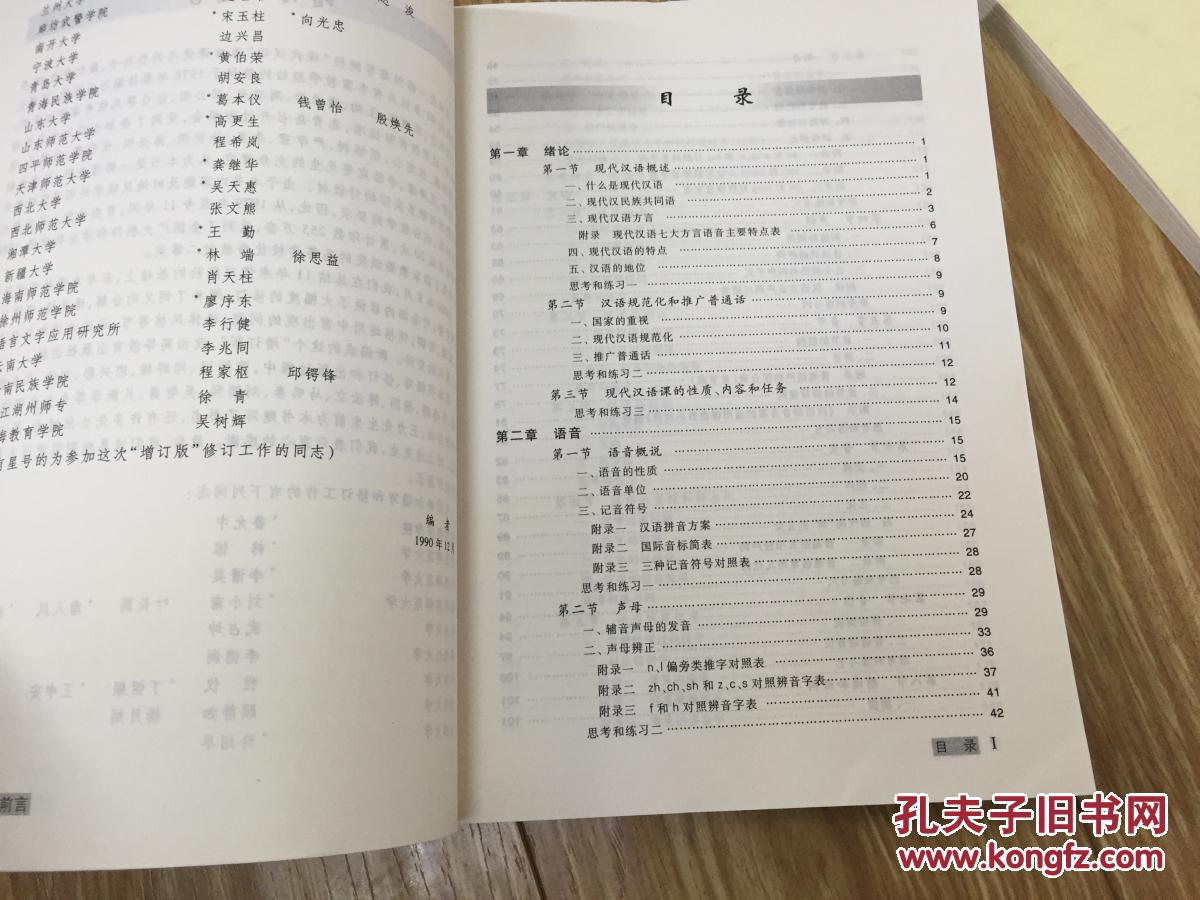 兰州大学
廊坊武警学院
南开大学
宁波大学
青岛大学
青海民族学院
山东大学
山东师范大学
四平师范学院
天津师范大学
西北大学
西北师范大学
湘潭大学
新疆大学
海南师范学院
徐州师范学院
语言文字应用研究所
云南大学
南民族学院
江湖州师专
海教育学院
*宋玉柱 *向光忠
边兴昌
*黄伯荣
胡安良
*葛本仪 钱曾怡 殷焕先
*高更生
程希岚
*龚继华
*吴天惠
张文熊
*王 勤
*林 端 徐思益
肖天柱
*廖序东
李行健
李兆同
程家枢 邱锷锋
徐 青
吴树辉
有星号的为参加这次“增订版”修订工作的同志)
编 者
1990年12月
前言
目 录
第一章 绪论……1
第一节 现代汉语概述……1
一、什么是现代汉语……1
二、现代汉民族共同语……2
三、现代汉语方言……3
附录 现代汉语七大方言语音主要特点表……6
四、现代汉语的特点……7
五、汉语的地位……8
思考和练习一……9
第二节 汉语规范化和推广普通话……9
一、国家的重视……9
二、现代汉语规范化……10
三、推广普通话……11
思考和练习二……12
第三节 现代汉语课的性质、内容和任务……12
思考和练习三……14
第二章 语音……15
第一节 语音概说……15
一、语音的性质……15
二、语音单位……20
三、记音符号……22
附录一 汉语拼音方案……24
附录二 国际音标简表……27
附录三 三种记音符号对照表……28
思考和练习一……28
第二节 声母……29
一、辅音声母的发音……29
二、声母辨正……33
附录一 n、l偏旁类推字对照表……36
附录二 zh、ch、sh和z、c、s对照辨音字表……37
附录三 f和h对照辨音字表……41
思考和练习二……42
目 录 I
孔夫子旧书网
www.kongfz.com